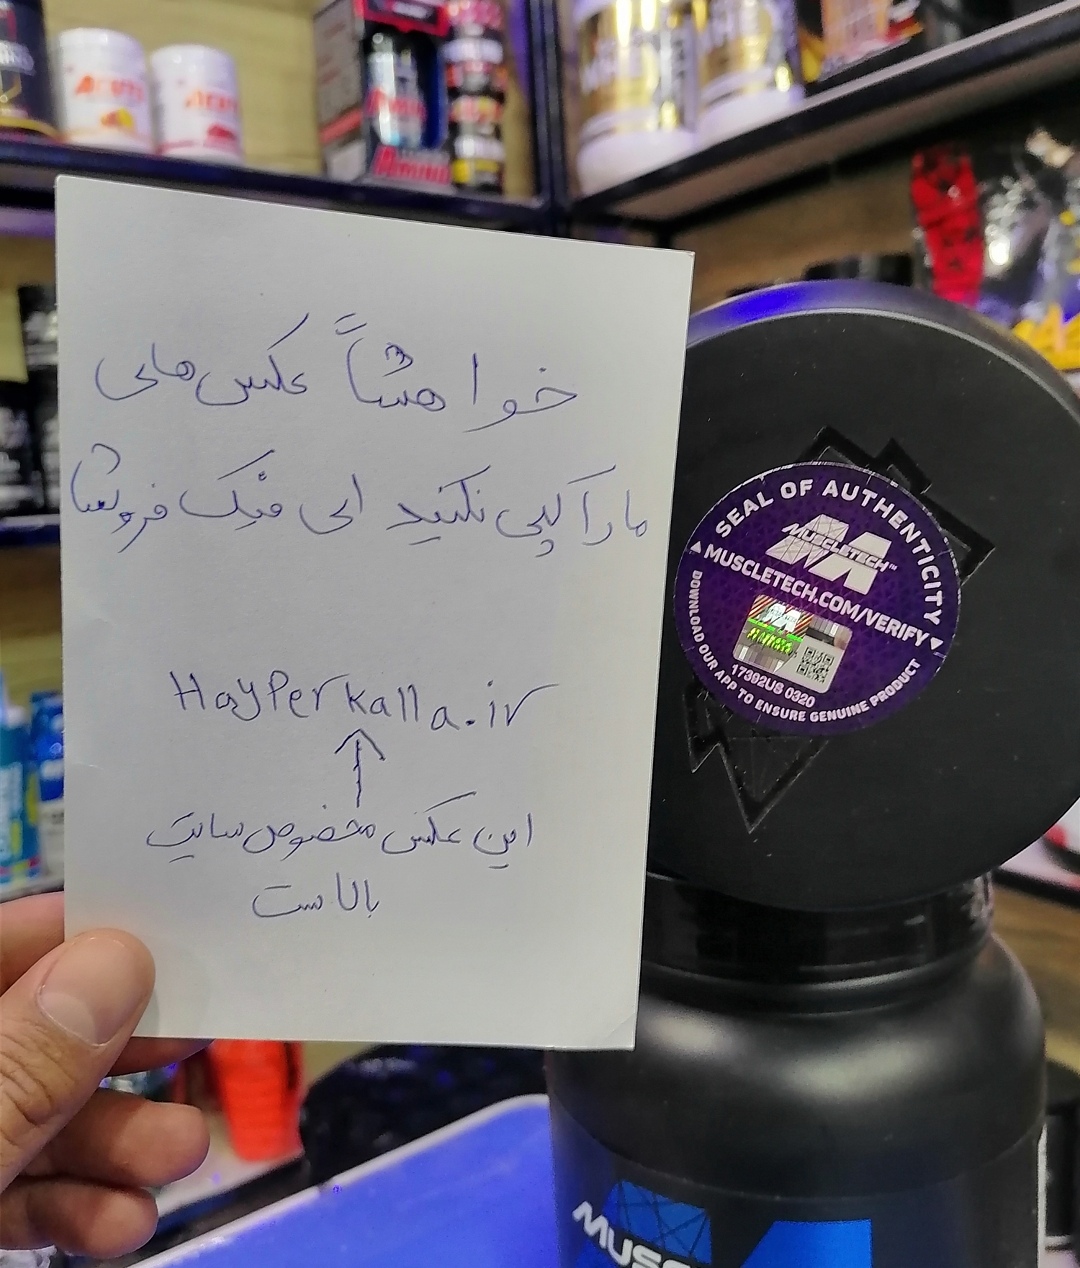 خواهشاً عکس های
ما را کپی نکنید ای فیک فروشا
HayPerkalla.ir
این عکس مخصوص سایت
بالاست
SEAL OF AUTHENTICITY
MUSCLETECH™
MUSCLETECH.COM/VERIFY
17392US 0320
DOWNLOAD OUR APP TO ENSURE GENUINE PRODUCT